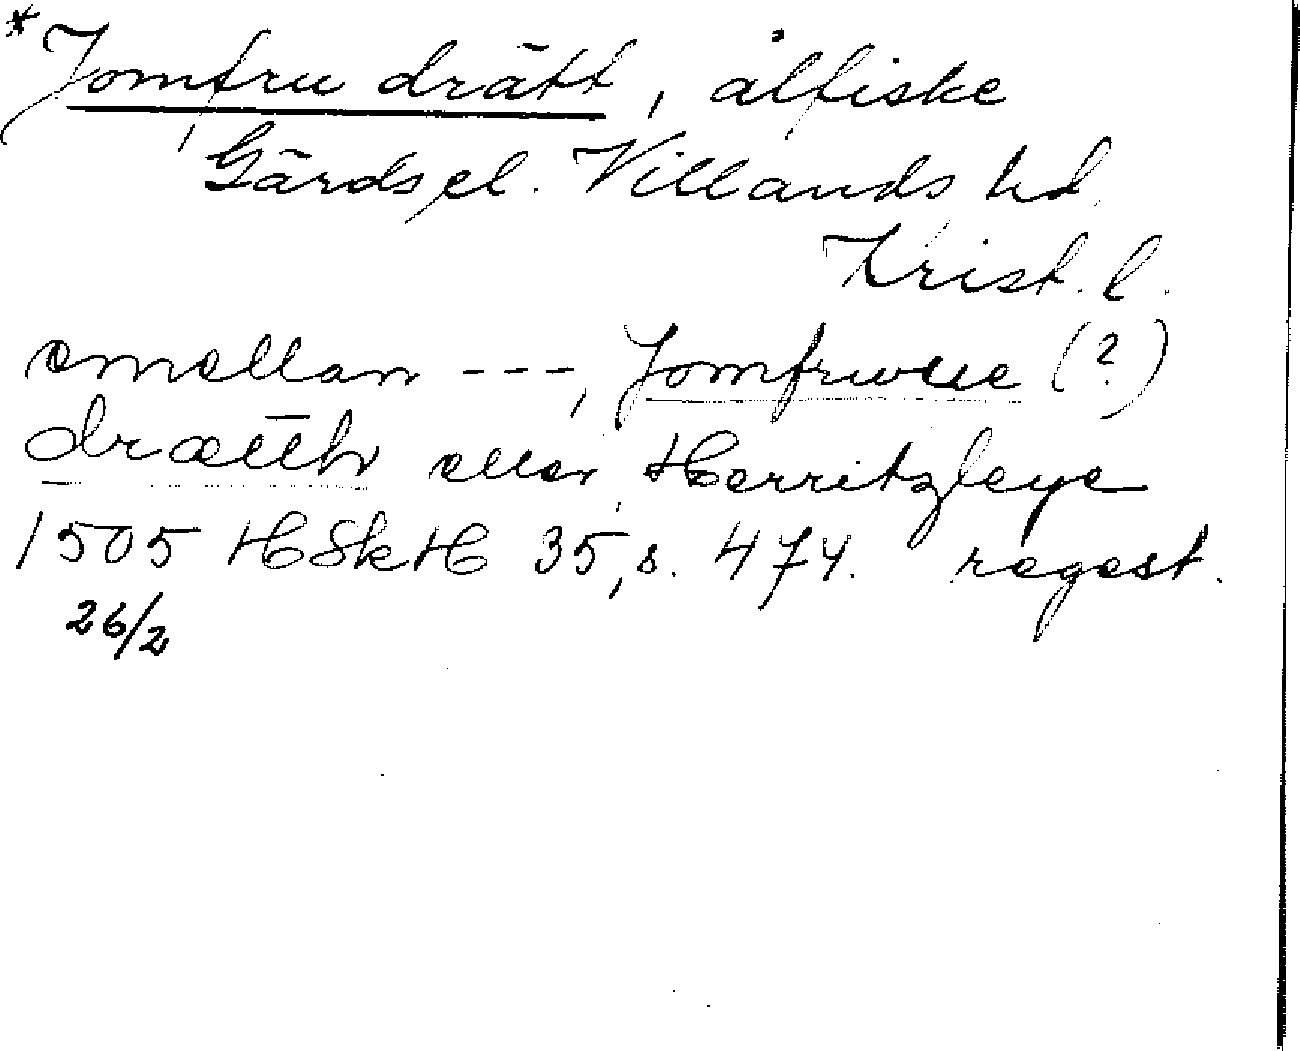 *Jomfru drätt, ålfiske
Gärds el. Villands hd.
Krist. l.
emellan ---, Jomfrwue (?)
drætth eller Herritzleye
1505 HSkH 35, s. 474. regest.
26/2